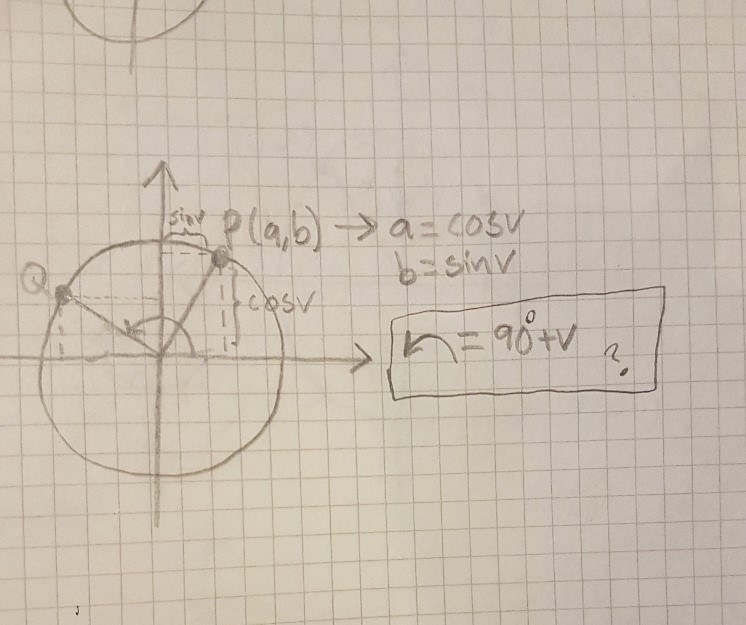 sinv
P(a,b) → a = cosv
b = sinv
Q
cosv
= 90° + v ?